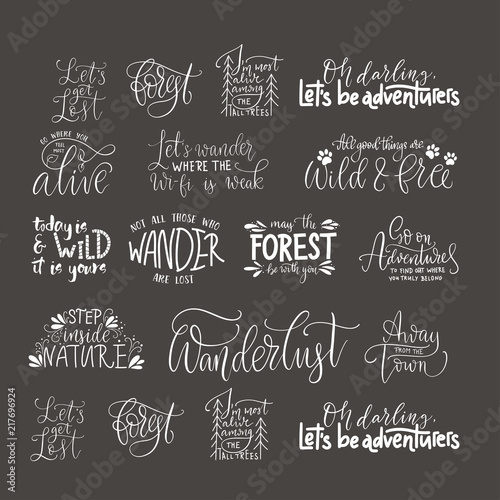 Let's
get
Lost
Forest
I'm most
alive
among
THE
TALL TREES
Oh darling,
Let's be adventurers
GO WHERE YOU
FEEL MOST
alive
Let's wander
WHERE THE
Wi-fi is weak
All good things are
Wild & free
today is
& WILD
it is yours
NOT ALL THOSE WHO
WANDER
ARE LOST
may the
FOREST
be with you
Go on
Adventures
TO FIND OUT WHERE
YOU TRULY BELONG
STEP
inside
NATURE
Wanderlust
Away
FROM THE
Town
Let's
get
Lost
Forest
I'm most
alive
among
THE
TALL TREES
Oh darling,
Let's be adventurers
Adobe Stock | #217696924